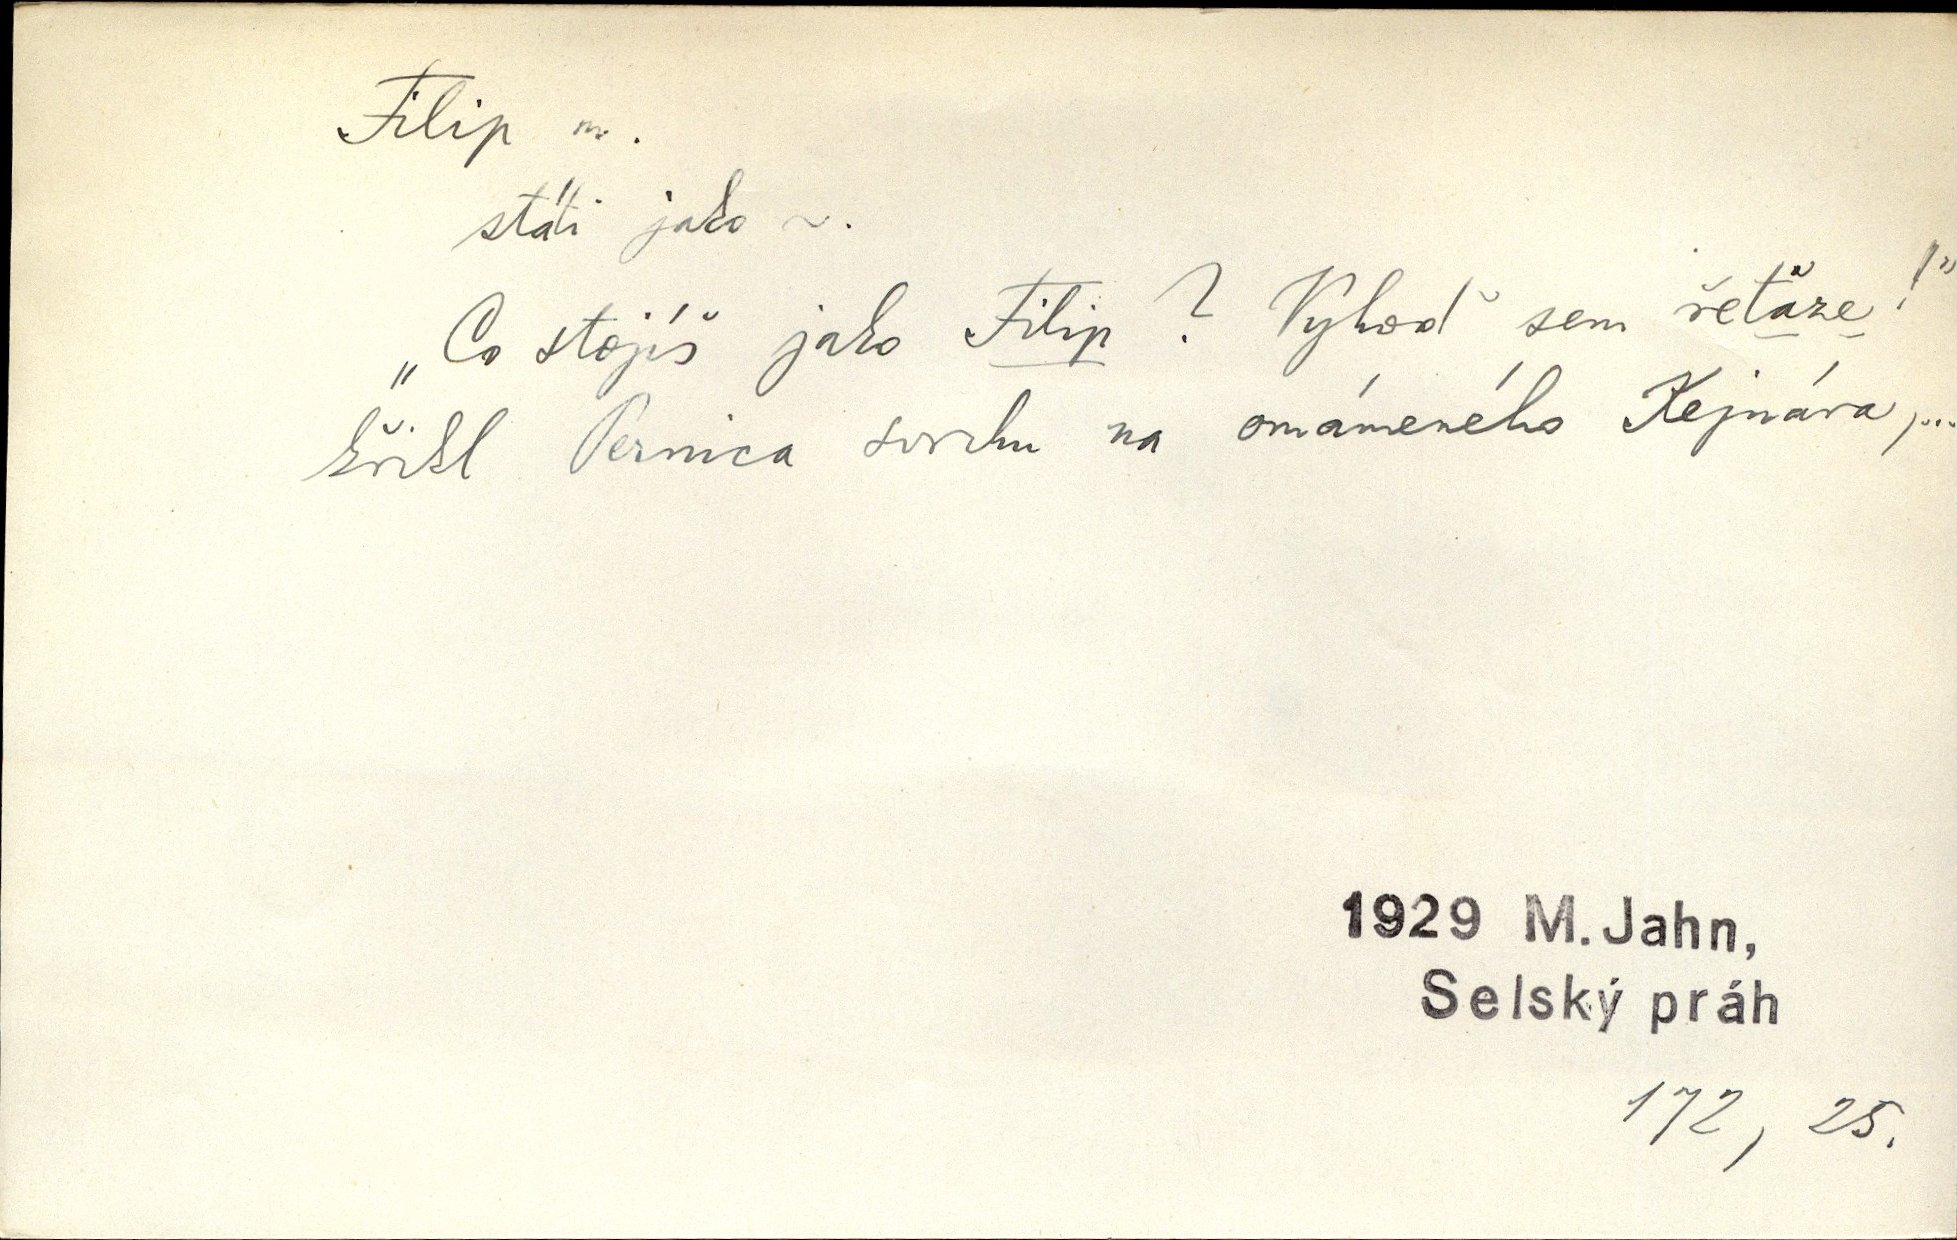 Filip m.
státi jako ~.
„Co stojíš jako Filip? Vyhoď sem řetäze!"
křikl Pernica svrchu na omámeného Kejnára,...
1929 M. Jahn,
Selský práh
172, 25.